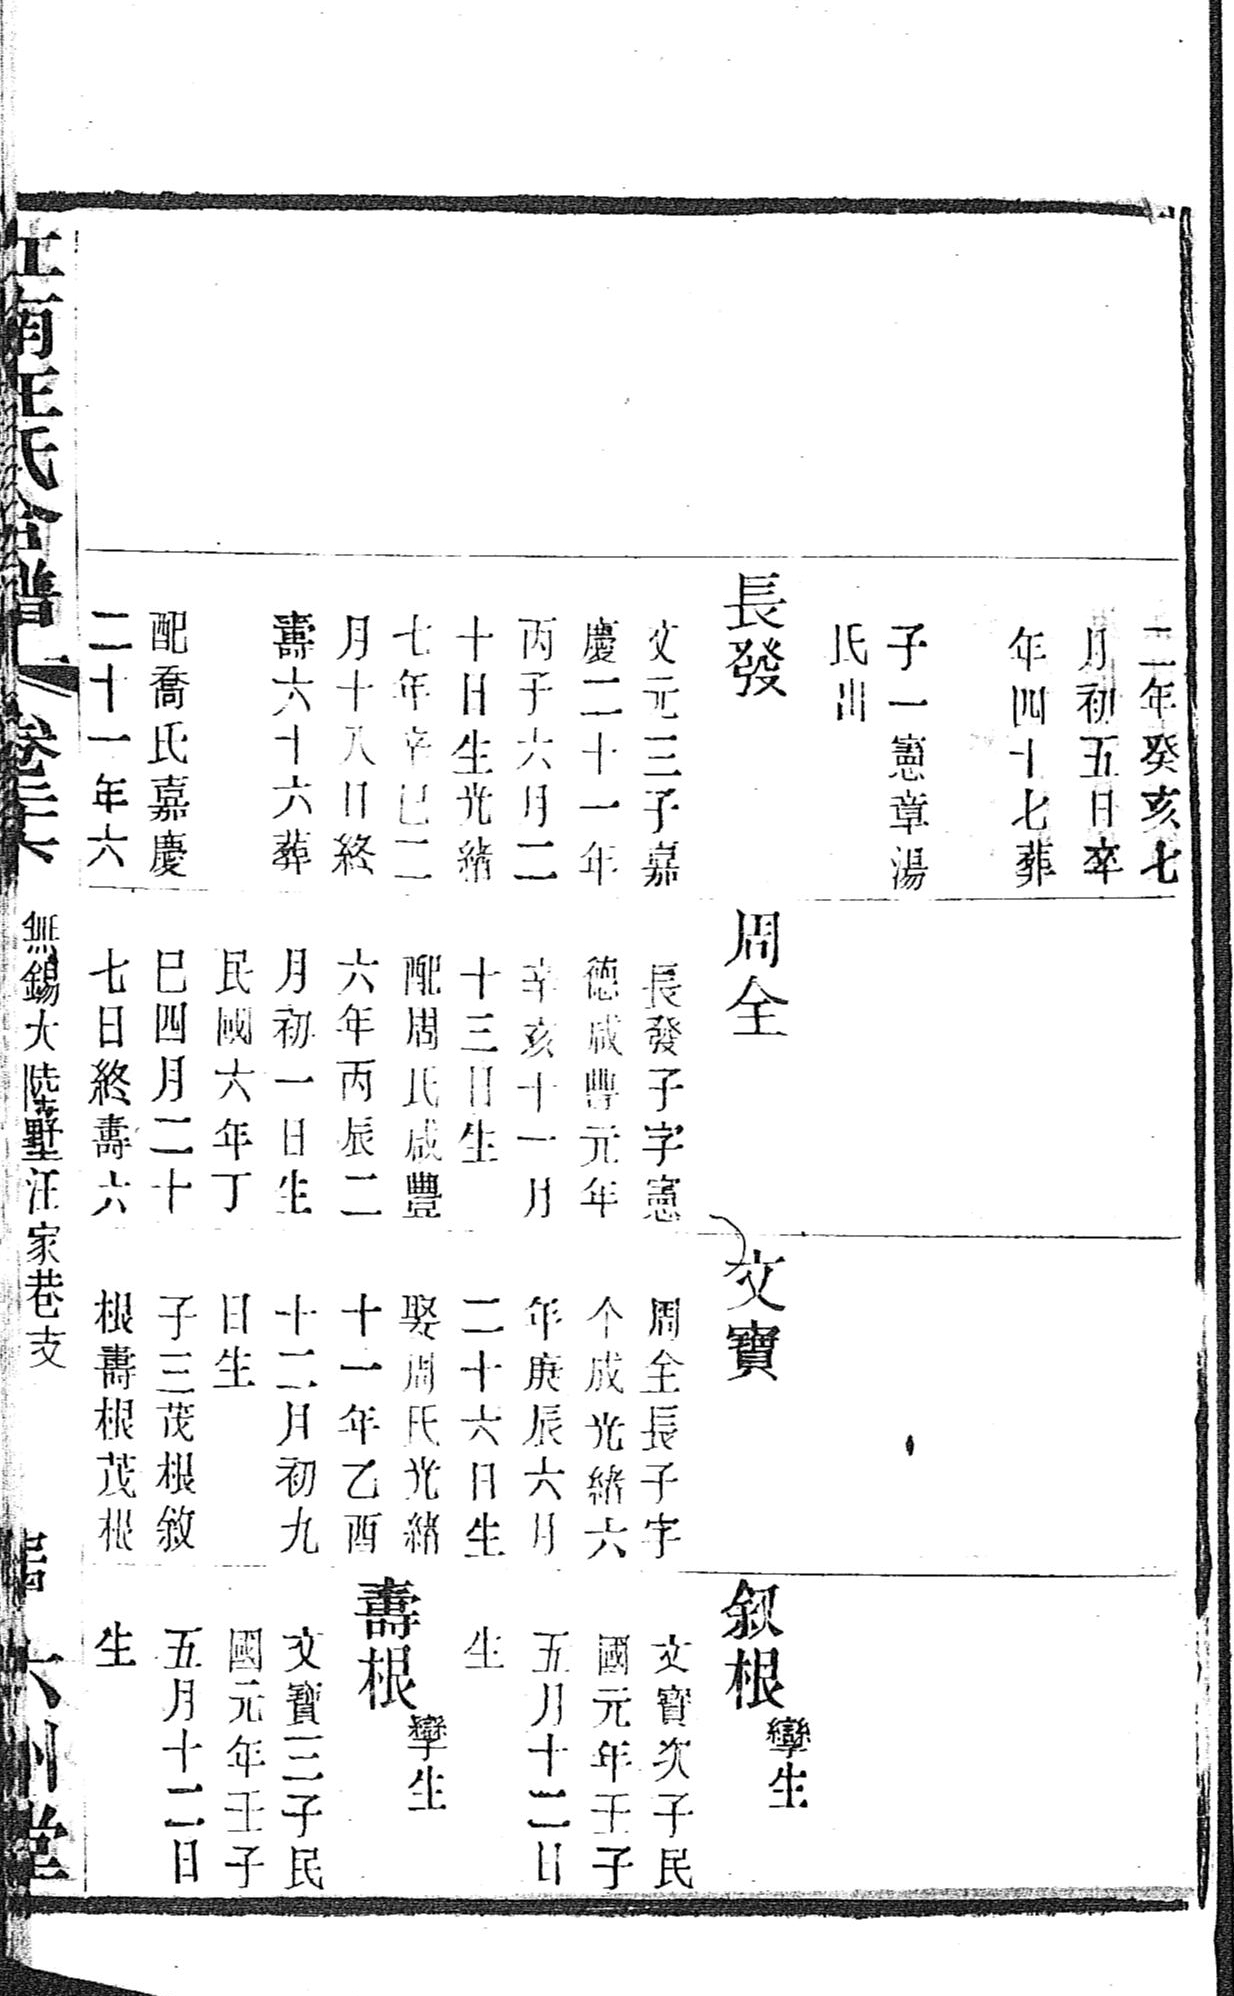 二年癸亥七
月初五日卒
年四十七葬
子一憲章湯
氏出
長發
文元三子嘉
慶二十一年
丙子六月二
十日生光緒
七年辛巳二
月十八日終
壽六十六葬
配喬氏嘉慶
二十一年六
周全
長發子字憲
德咸豐元年
辛亥十一月
十三日生
配周氏咸豐
六年丙辰二
月初一日生
民國六年丁
巳四月二十
七日終壽六
文寶
周全長子字
个成光緒六
年庚辰六月
二十六日生
娶周氏光緒
十一年乙酉
十二月初九
日生
子三茂根敘
根壽根茂根
敘根 孿生
文寶次子民
國元年壬子
五月十二日
生
壽根 孿生
文寶三子民
國元年壬子
五月十二日
生
江南汪氏合譜
卷三六
無錫大陸墅汪家巷支
六州堂